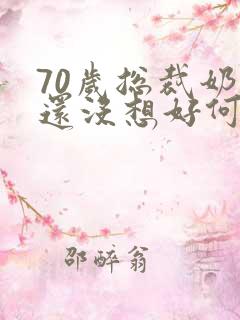 70歲総裁奶
還沒想好何
邵醉翁